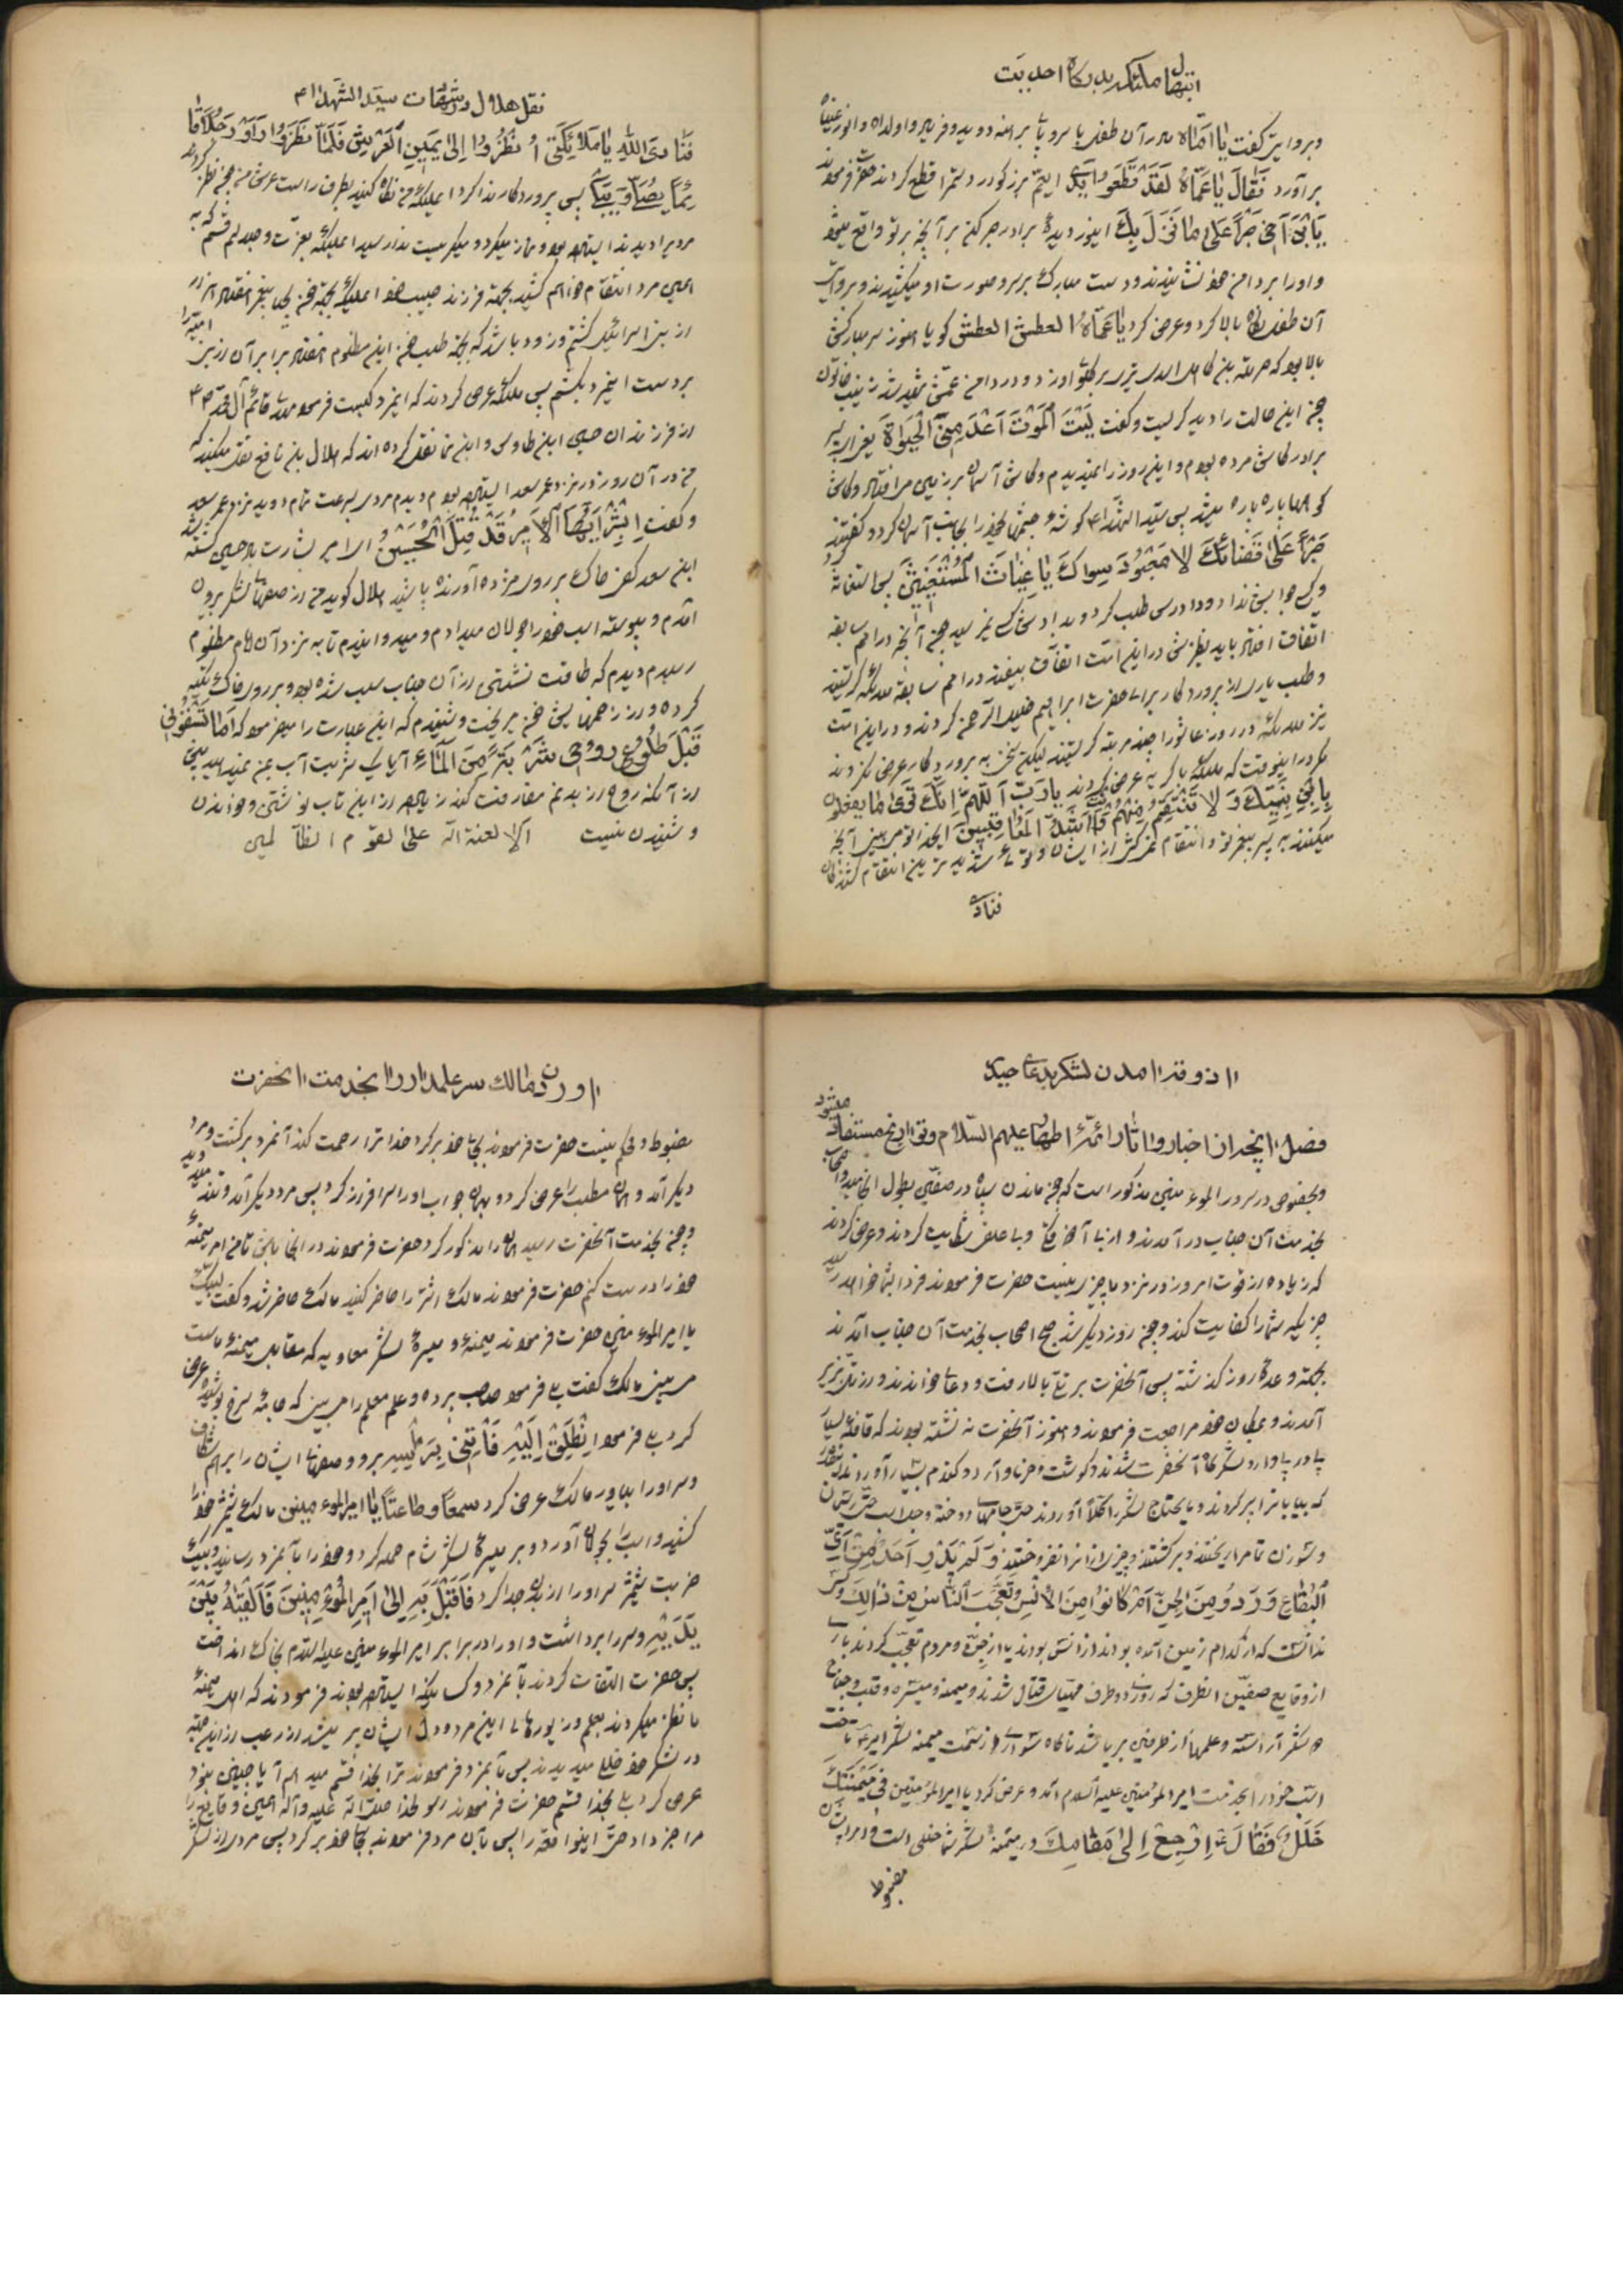 ابتهال ملائکه بدرکاه احدیت
و بروایتی کفت یا امّاه مادر آن طفل با سر و پای برهنه دوید و فریاد واولداه وانور عیناه
برآورد فَقَالَ یَا عَمَّاهُ لَقَدْ قَطَعُوا یَدِی ای عم بزرکوار دستم را قطع کردند حضرت فرمودند
یَابْنَ اَخِی صَبْراً عَلی مَا نَزَلَ بِکَ ای نور دیدهٔ برادر صبر کن بر آنچه بر تو واقع میشود
و او را بر دامن خود نشانیدند و دست مبارک بر سر و صورت او میکشیدند و بروایتی
آن طفل نکاه بالا کرد و عرض کرد یَا عَمَّاهُ العطش العطش کویا هنوز سر مبارکش
بالا بود که حرملة بن کاهل اسدی تیری بر کلوی او زد و در دامن عمّش شهید شد زینب خاتون
چون این حالت را دید کریست و کفت لَیْتَ الْمَوْتَ اَعْدَمَنِیَ الْحَیوٰةَ یعنی ای
برادر کاش مرده بودم و این روز را نمیدیدم و کاش آسمان بر زمین می افتاد و کاش
کوهها پاره پاره میشد پس سیّد الشّهدا ع کوشهٔ چشمها خود را بجانب آسمان کرد و کفتند
صَبْراً عَلیٰ قَضَائِکَ لا مَعْبُودَ سِواکَ یَا غِیَاثَ الْمُسْتَغِیثِینَ پس استغاثه کرد
و کسی جوابش نداد و دادرسی طلب کرد و بدادش کسی نرسید چون آنچه در امم سابقه
اتّفاق افتاد باید نظیرش در این امّت اتفاق بیفتد در امم سابقه ملائکه کریستند
و طلب یاری از پروردکار برای حضرت ابراهیم خلیل الرّحمن کردند و در این امّت
نیز ملائکه در روز عاشورا چند مرتبه کریستند لیکن سخن به پروردکار عرض نکردند
مکر در اینوقت که ملائکه با کریه عرض کردند یا رَبِّ اَللّهُمَّ اِنَّکَ تَریٰ مَا یَفْعَلُونَ
بِابْنِ نَبِیِّکَ وَ لا تَنْتَقِمُ مِنْهُمْ وَ اَنْتَ اَشَدُّ الْمُعَاقِبِینَ ایخدا تو می بینی آنچه
میکنند به پسر پیغمبر تو و انتقام نمیکشی از ایشان و توئی شدیدترین انتقام کشندکان
فنادی
نقل هلال در شهادت سیّد الشّهدا ع
فَنَادَی اللهِ یَا مَلَائِکَتِی اُنْظُرُوا اِلیٰ یَمِینِ الْعَرْشِ فَلَمَّا نَظَرُوا رَاَوْ رَجُلاً قَائِماً
یُصَلِّی وَ یَبْکِی پس پروردکار ندا کرد ای ملائکه من نکاه کنید بطرف راست عرش من چون نظر کردند
مردی را دیدند ایستاده بود و نماز میکرد و میکریست ندا رسید ای ملائکه بعزّت و جلالم قسم که به
همین مرد انتقام خواهم کشید بجهة فرزند حبیب خود
از بنی اسرائیل کشتم و زود باشد که بجهة طلب خون این مظلوم هفتاد برابر آن از این امت را
بر دست این مرد بکشم پس ملائکه عرض کردند که این مرد کیست فرمود قائم آل محمّد ص
از فرزندان حسین ابن طاوس و ابن نما نقل کرده اند که هلال بن نافع نقل میکند که
من در آن روز در نزد عمر سعد ایستاده بودم دیدم مردی بسرعت تمام دوید نزد عمر سعد
و کفت اِبْشِرْ اَیُّهَا الْاَمِیرُ قَدْ قُتِلَ الْحُسَیْنُ ای امیر بشارت باد حسین کشته شد
ابن سعد کفی خاک بر روی مژده آورنده پاشید هلال کوید من از صفهای لشکر بیرون
آمدم و پیوسته اسب خود را جولان میدادم و میدوانیدم تا به نزد آن امام مظلوم
رسیدم دیدم که طاقت نشستن از آن جناب سلب شده بود و بر روی خاک تکیه
کرده و از زخمهایش خون میریخت و شنیدم که این عبارت را میفرمود که اَمَا تَسْقُونِی
قَبْلَ طُلُوعِ رُوحِی شَرْبَةً مِنَ الْمَاءِ آیا یک شربت آب بمن نمیدهید پیش
از آنکه روح از بدنم مفارقت کند زیاده از این تاب نوشتن و خواندن
و شنیدن نیست الا لعنة الله علی القوم الظّالمین
اذوقه آمدن لشکر بدعای حیدر
فصل اینچه از اخبار و آثار ائمّهٔ اطهار علیهم السّلام و تواریخ مستفاد میشود
و بخصوص در سرور المؤمنین مذکور است که چون ماندن سپاه در صفّین بطول انجامید اصحاب
بخدمت آن جناب درآمدند و از نایابی آذوقه و بی علفی شکایت کردند و عرض کردند
که زیاده از قوت امروز در نزد ما چیزی نیست حضرت فرمودند فردا بشما خواهد رسید
چیزیکه شما را کفایت کند و چون روز دیکر شد جمیع اصحاب بخدمت آن جناب آمدند
بجهة وعدهٔ روز کذشته پس آنحضرت بر تلّی بالا رفت و دعائی خواندند و از تلّ بزیر
آمدند و بمکان خود مراجعت فرمودند و هنوز آنحضرت ننشسته بودند که قافلهٔ بسیاری
پی در پی وارد لشکرکاه آنحضرت شدند و کوشت و خرما و آرد و کندم بسیار آوردند
که بیابانرا پر کردند و مایحتاج لشکر را کلّاً آوردند حتّی جامهای دوخته و جلد اسب حتّی ریسمان
و سوزن تمام را ریختند و برکشتند و چیزی از آنرا نفروختند وَ لَمْ یَدْرِ اَحَدٌ مِنْ اَیِّ
الْبِقَاعِ وَرَدُوا مِنَ الْجِنِّ اَمْ کَانُوا مِنَ الْاِنْسِ وَ تَعَجَّبَ النَّاسُ مِنْ ذٰلِکَ و کسی
ندانست که از کدام زمین آمده بودند از انس بودند یا از جنّ و مردم تعجّب کردند باری
از وقایع صفّین انطرف که روزی دو طرف مهیّای قتال شدند و میمنه و میسره و قلب و جناح
لشکر آراسته و علمها از طرفین بر پا شد ناکاه سواری از سمت میمنه لشکر امیر ع تاخت
اسب خود را بخدمت امیر المؤمنین علیه السلام آمد و عرض کرد یا امیر المؤمنین فِی مَیْمَنَتِکَ
خَلَلٌ فَقَالَ ع اِرْجِعْ اِلیٰ مَقَامِکَ در میمنهٔ لشکر شما خللی است
مضبوط
آوردن مالک سر علمدار را بخدمت آنحضرت
مضبوط و محکم نیست حضرت فرمودند بجای خود برکرد خدا ترا رحمت کند آنمرد برکشت و مرد
دیکر آمد و همان مطلب را عرض کرد و بهمان جواب او را سرافراز کرد پس مرد دیکر آمد
و چون بخدمت آنحضرت رسید همان را مذکور کرد حضرت فرمودند در اینجا باش تا من امر میمنهٔ
خود را درست کنم حضرت فرمودند مالک اشتر را حاضر کنید مالک حاضر شد و کفت لبیک
یا امیر المؤمنین حضرت فرمودند میمنه و میسرهٔ لشکر معاویه که مقابل میمنهٔ ماست
می بینی مالک کفت بلی فرمود صاحب برده و علم معلم را می بینی که جامهٔ سرخ پوشیده عرض
کرد بلی فرمود اِنْطَلِقْ اِلَیْهِ فَأْتِنِی بِرَأْسِهِ برو و صفهای ایشان را برهم شکاف
و سر او را بیاور مالک عرض کرد سمعاً و طاعتاً یا امیر المؤمنین مالک شمشیر خود را
کشید و اسب را بجولان آورد و بر میسرهٔ لشکر شام حمله کرد و خود را بآنمرد رسانید و بیک
ضربت شمشیر سر او را از بدن جدا کرد فَاَقْبَلَ بِهِ اِلیٰ اَمِیرِ الْمُؤْمِنِینَ فَاَلْقَیٰهُ بَیْنَ
یَدَیْهِ و سر را برداشت و او را در برابر امیر المؤمنین علیه السّلام بخاک انداخت
پس حضرت التفات کردند بآنمرد و کسانیکه ایستاده بودند فرمودند که اهل میمنهٔ
ما نظر میکردند بعلم و زیورهای این مرد و دل ایشان پر میشد از رعب از این جهة
در لشکر خود خلل میدیدند پس بآنمرد فرمودند ترا بخدا قسم میدهم آیا چنین بود
عرض کرد بلی بخدا قسم حضرت فرمودند رسول خدا صلّی الله علیه و آله همین وقایع را
مرا خبر داد حتّی اینواقعه را پس بآن مرد فرمودند بجای خود برکرد پس مردی از لشکر